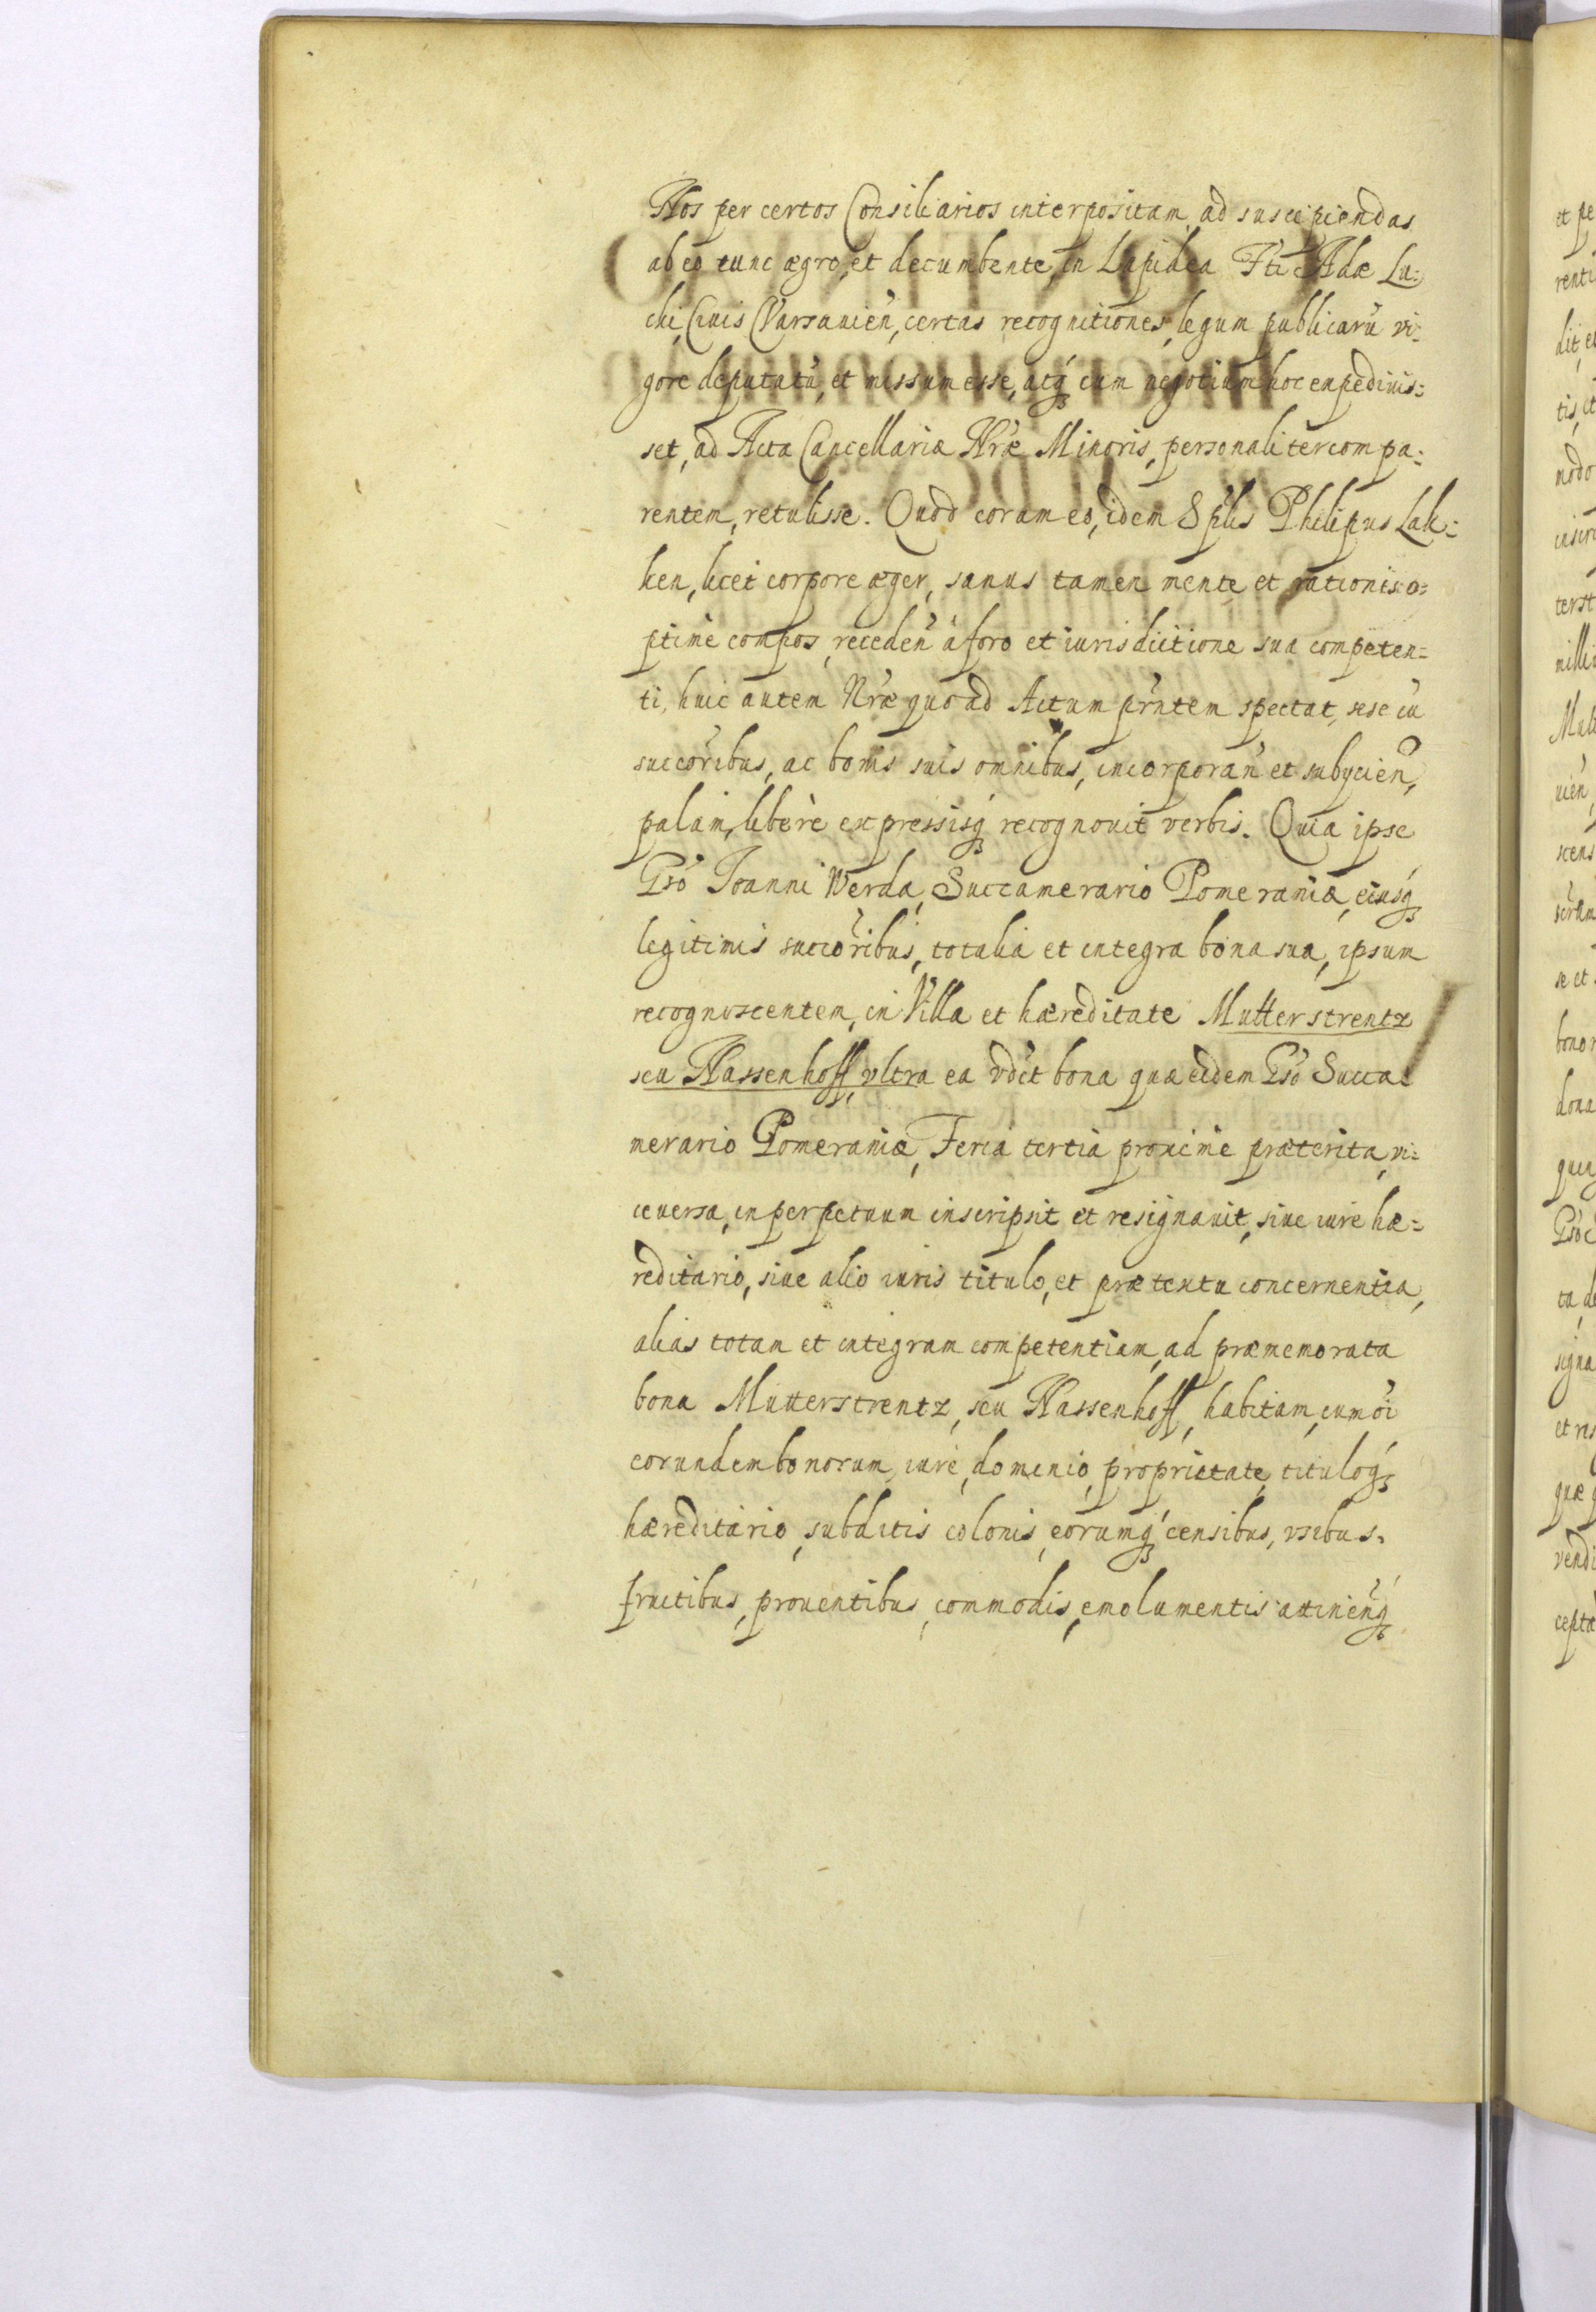 Nos per certos Consiliarios interpositam, ad suscipiendas
ab eo tunc ægro, et decumbente, in Lapidea Fti Adæ Lu=
chi, Ciuis Varsauien̄, certas recognitiones, legum publicarū vi=
gore deputatū, et missum esse, atq́ꝫ cum negotium hoc expediuis=
set, ad Acta Cancellariæ Nr̄æ Minoris, personaliter compa=
rentem, retulisse. Quod coram eo, idem Spl̄is Philipus Lak=
ken, licet corpore æger, sanus tamen mente et rationis o=
ptimè compos, receden̄ à foro et iurisdictione sua competen=
ti, huic autem Nr̄æ quoad Actum prn̄tem spectat, sese cū
succoribus, ac bonis suis omnibus, incorporan̄ et subycien̄,
palàm, liberè expressisq́ꝫ recognouit verbis. Quia ipse
Gso Ioanni Werda, Succamerario Pomeraniæ, eiusq́ꝫ
legitimis succoribus, totalia et integra bona sua, ipsum
recognoscentem, in Villa et hæreditate Mutterstrentz
seu Nassenhoff, vltra ea vdct bona quæ eidem Gso Succa=
merario Pomeraniæ, Feria tertia proximè præterita, vi=
ceuersa, in perpetuum inscripsit et resignauit, siue iure hæ=
reditario, siue alio iuris titulo, et prætextu concernentia,
alias totam et integram competentiam, ad præmemorata
bona Mutterstrentz, seu Nassenhoff, habitam, cum oi
eorundem bonorum iure, dominio, proprietate, tituloq́ꝫ
hæreditario, subditis colonis, eorumq́ꝫ censibus, vsibus,
fructibus, prouentibus, commodis, emolumentis attinen̄q́ꝫ